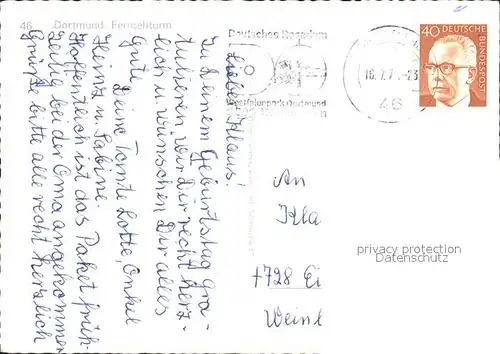 46 Dortmund, Fernsehturm
Lieber Klaus!
Zu Deinem Geburtstag gra-
tulieren wir Dir recht herz-
lich u. wünschen Dir alles
Gute Deine Tante Lotte, Onkel
Heinz u. Sabine.
Hoffentlich ist das Paket früh-
zeitig bei der Oma angekommen
Grüße bitte alle recht herzlich
Deutsches Rosarium
Westfalenpark Dortmund
46
40 DEUTSCHE
BUNDESPOST
An
Kla
7728 Ei
Weinl
privacy protection
Datenschutz